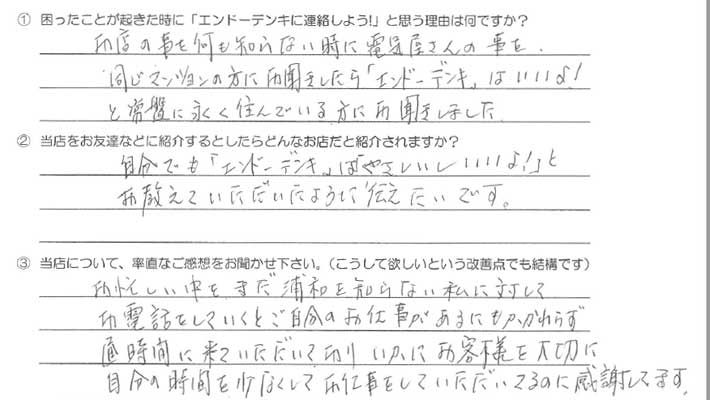 ① 困ったことが起きた時に「エンドーデンキに連絡しよう!」と思う理由は何ですか?
お店の事を何も知らない時に電気屋さんの事を、
同じマンションの方にお聞きしたら「エンドーデンキ」はいいよ!
と常盤に永く住んでいる方にお聞きしました
② 当店をお友達などに紹介するとしたらどんなお店だと紹介されますか?
自分でも「エンドーデンキ」は「やさしいしいいよ!」と
お教えていただいたように伝えたいです。
③ 当店について、率直なご感想をお聞かせ下さい。(こうして欲しいという改善点でも結構です)
お忙しい中をまだ浦和を知らない私に対して
お電話をしていくとご自分のお仕事があるにもかかわらず
時間に来ていただいており いかにお客様を大切に
自分の時間を少なくしてお仕事をしていただいてるのに感謝してます。